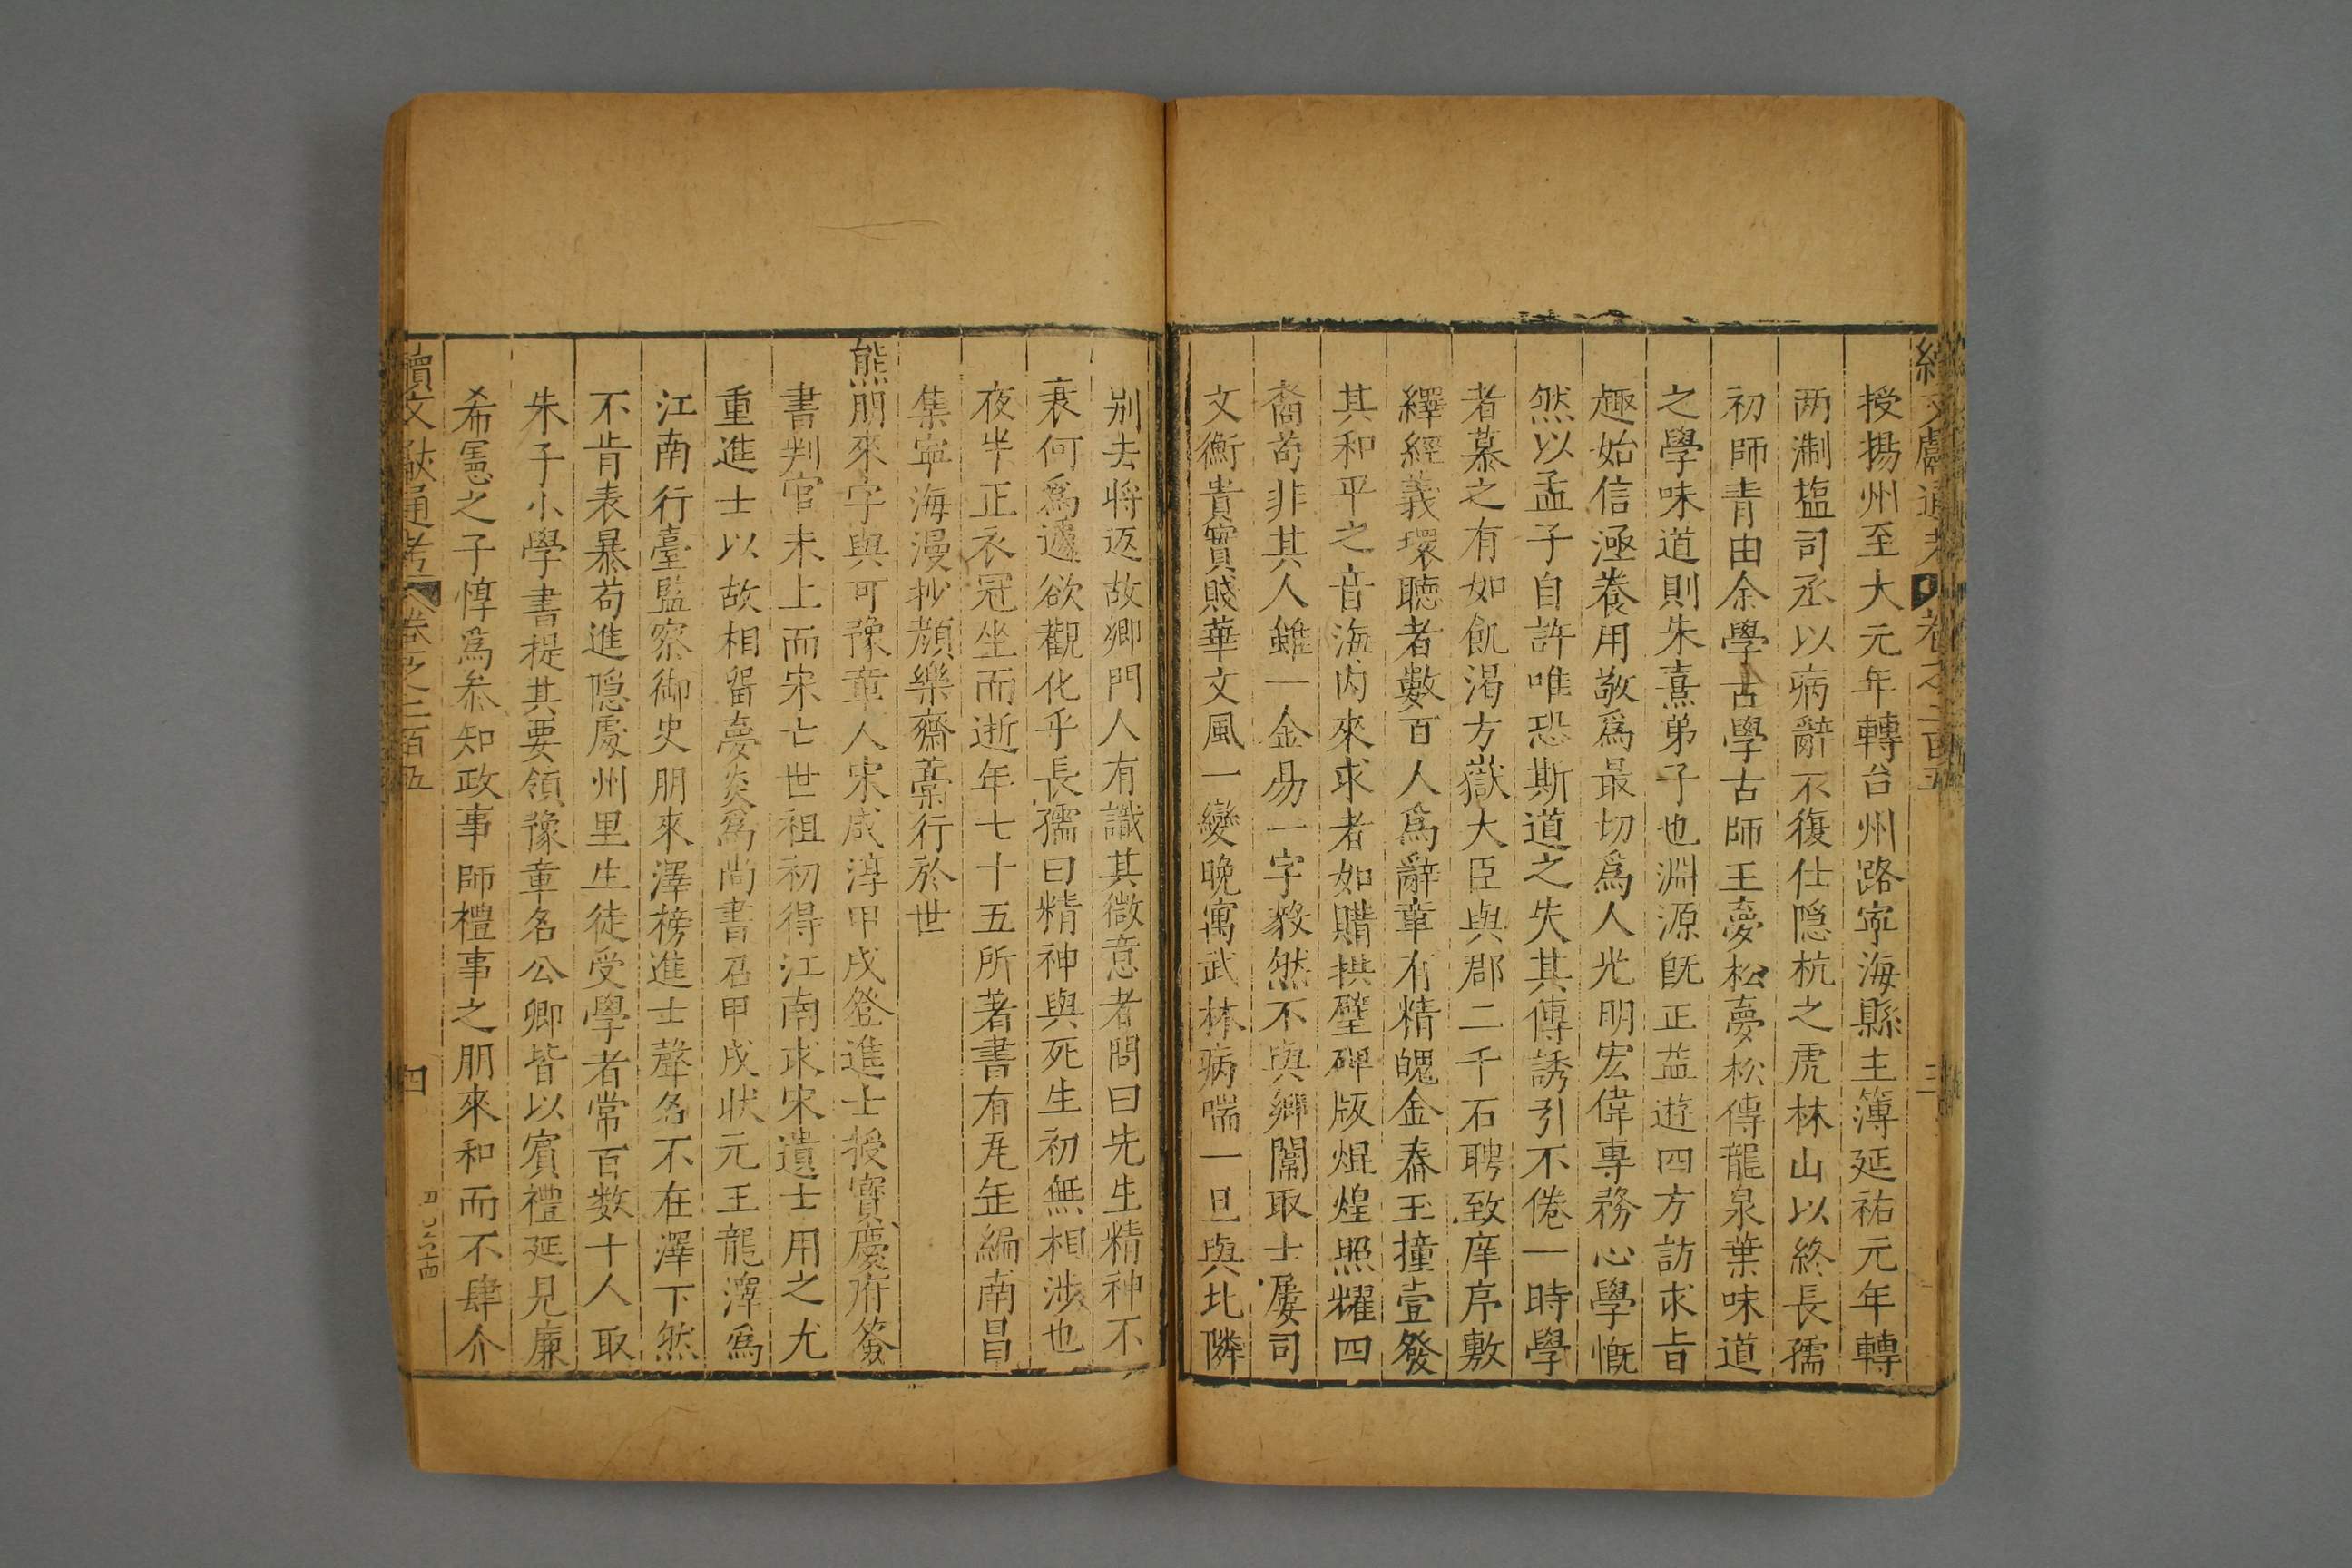 續文獻通考 卷之二百五 三
授揚州至大元年轉台州路寧海縣主簿延祐元年轉
两淛塩司丞以病辭不復仕隠杭之虎林山以終長孺
初師青由余學古學古師王夢松夢松傳龍泉葉味道
之學味道則朱熹弟子也淵源旣正益遊四方訪求旨
趣始信涵養用敬爲最切爲人光明宏偉專務心學慨
然以孟子自許唯恐斯道之失其傳誘引不倦一時學
者慕之有如飢渴方嶽大臣與郡二千石聘致庠序敷
繹經義環聽者數百人爲辭章有精魄金舂玉撞壹發
其和平之音海内來求者如購拱璧碑版焜煌照耀四
裔苟非其人雖一金易一字毅然不與鄉闈取士屢司
文衡貴實賤華文風一變晚寓武林病喘一旦與比隣
别去將返故鄉門人有識其微意者問曰先生精神不
衰何爲遽欲觀化乎長孺曰精神與死生初無相涉也
夜半正衣冠坐而逝年七十五所著書有瓦缶編南昌
集寧海漫抄顔樂齋藳行於世
熊朋來字與可豫章人宋咸淳甲戌登進士授寶慶府簽
書判官未上而宋亡世祖初得江南求宋遺士用之尤
重進士以故相留夢炎爲尚書召甲戌狀元王龍澤爲
江南行臺監察御史朋來澤榜進士聲名不在澤下然
不肯表暴苟進隠處州里生徒受學者常百数十人取
朱子小學書提其要領豫章名公卿皆以賓禮延見廉
希憲之子惇爲叅知政事師禮事之朋來和而不肆介
續文獻通考 卷之二百五 四